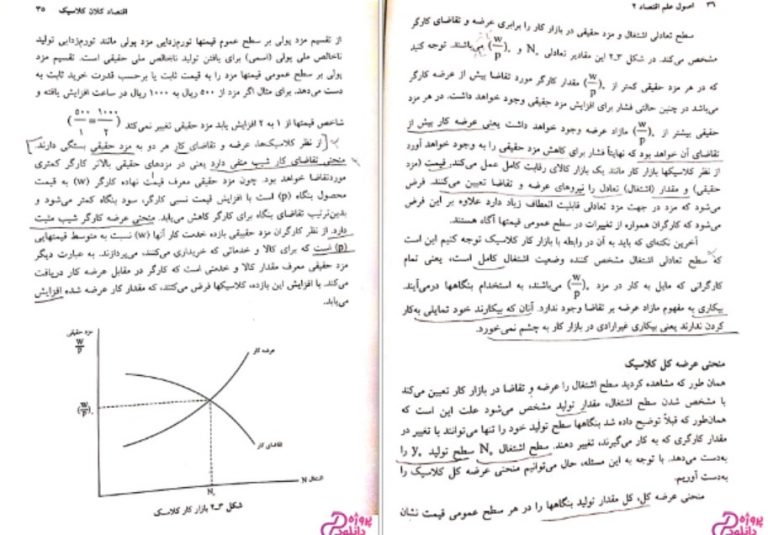 اقتصاد کلان کلاسیک ۳۵
از تقسیم مزد پولی بر سطح عموم قیمتها تورم‌زدایی مزد پولی مانند تورم‌زدایی تولید
ناخالص ملی پولی (اسمی) برای یافتن تولید ناخالص ملی حقیقی است. تقسیم مزد
پولی بر سطح عمومی قیمتها مزد را به قیمت ثابت یا برحسب قدرت خرید ثابت به
دست می‌دهد. برای مثال اگر مزد از ۵۰۰ ریال به ۱۰۰۰ ریال در ساعت افزایش یافته و
شاخص قیمتها از ۱ به ۲ افزایش یابد مزد حقیقی تغییر نمی‌کند (۵۰۰/۱ = ۱۰۰۰/۲)
از نظر کلاسیک‌ها، عرضه و تقاضای کار هر دو به مزد حقیقی بستگی دارند.
منحنی تقاضای کار شیب منفی دارد یعنی در مزدهای حقیقی بالاتر کارگر کمتری
موردتقاضا خواهد بود. چون مزد حقیقی معرف قیمت نهاده کارگر (w) به قیمت
محصول بنگاه (p) است با افزایش قیمت نسبی کارگر، سود بنگاه کمتر می‌شود و
بدین‌ترتیب تقاضای بنگاه برای کارگر کاهش می‌یابد. منحنی عرضه کارگر شیب مثبت
دارد. از نظر کارگران مزد حقیقی بازده خدمت کار آنها (w) نسبت به متوسط قیمتهایی
(p) است که برای کالا و خدماتی که خریداری می‌کنند، می‌پردازند. به عبارت دیگر
مزد حقیقی معرف مقدار کالا و خدمتی است که کارگر در مقابل عرضه کار دریافت
می‌کند. با افزایش این بازده، کلاسیکها فرض می‌کنند، که مقدار کار عرضه شده افزایش
می‌یابد.
مزد حقیقی
w/p
عرضه کار
(w/p)۰
تقاضای کار
N۰
اشتغال N
شکل ۳ـ۲ بازار کار کلاسیک
پروژه
دانلود
۳۶ اصول علم اقتصاد ۲
سطح تعادلی اشتغال و مزد حقیقی در بازار کار را برابری عرضه و تقاضای کارگر
مشخص می‌کند. در شکل ۳ـ۲ این مقادیر تعادلی N۰ و (w/p)۰ می‌باشند. توجه کنید
که در هر مزد حقیقی کمتر از (w/p)۰ مقدار کارگر مورد تقاضا بیش از عرضه کارگر
می‌باشد در چنین حالتی فشار برای افزایش مزد حقیقی وجود خواهد داشت. در هر مزد
حقیقی بیشتر از (w/p)۰ مازاد عرضه وجود خواهد داشت یعنی عرضه کار بیش از
تقاضای آن خواهد بود که نهایتاً فشار برای کاهش مزد حقیقی را به وجود خواهد آورد
از نظر کلاسیکها بازار کار مانند یک بازار کالای رقابت کامل عمل می‌کند، قیمت (مزد
حقیقی) و مقدار (اشتغال) تعادل را نیروهای عرضه و تقاضا تعیین می‌کنند. فرض
می‌شود که مزد در جهت مزد تعادلی قابلیت انعطاف زیاد دارد علاوه بر این فرض
می‌شود که کارگران همواره از تغییرات در سطح عمومی قیمتها آگاه هستند.
آخرین نکته‌ای که باید به آن در رابطه با بازار کار کلاسیک توجه کنیم این است
که سطح تعادلی اشتغال مشخص کننده وضعیت اشتغال کامل است، یعنی تمام
کارگرانی که مایل به کار در مزد (w/p)۰ می‌باشند، به استخدام بنگاهها درمی‌آیند.
بیکاری به مفهوم مازاد عرضه بر تقاضا وجود ندارد. آنان که بیکارند خود تمایلی به‌کار
کردن ندارند یعنی بیکاری غیرارادی در بازار کار به چشم نمی‌خورد.
منحنی عرضه کل کلاسیک
همان طور که مشاهده کردید سطح اشتغال را عرضه و تقاضا در بازار کار تعیین می‌کند
با مشخص شدن سطح اشتغال، مقدار تولید مشخص می‌شود علت این است که
همان‌طور که قبلاً توضیح داده شد بنگاهها سطح تولید خود را تنها می‌توانند با تغییر در
مقدار کارگری که به کار می‌گیرند، تغییر دهند. سطح اشتغال N۰ سطح تولید y۰ را
به‌دست می‌دهد. با توجه به این مسئله، حال می‌توانیم منحنی عرضه کل کلاسیک را
به‌دست آوریم.
منحنی عرضه کل، کل مقدار تولید بنگاهها را در هر سطح عمومی قیمت نشان
پروژه
دانلود